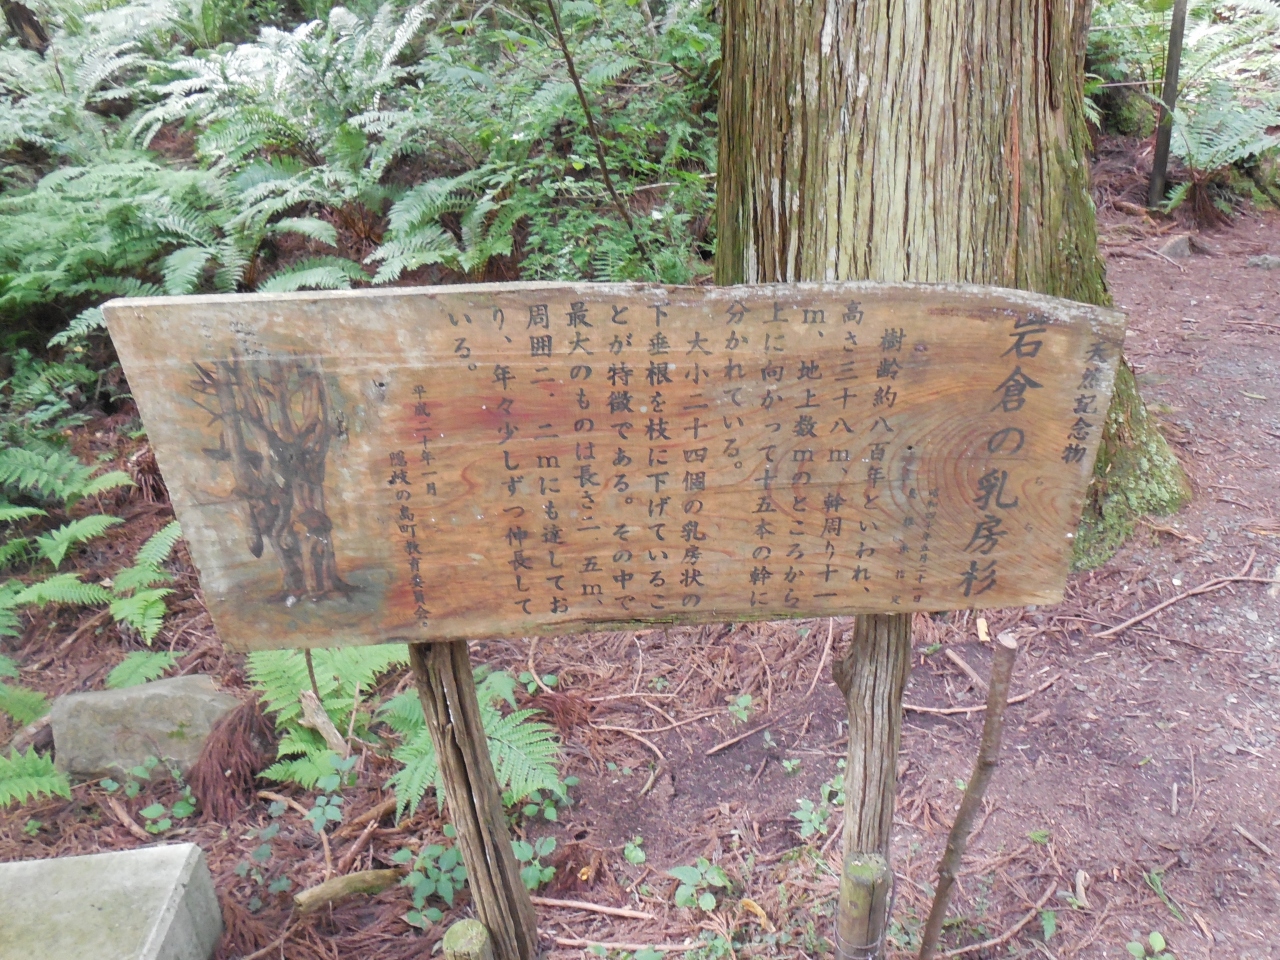 天然記念物
岩倉の乳房杉
樹齢約八百年といわれ、
高さ三十八m、幹周り十一
m、地上数mのところから
上に向かって十五本の幹に
分かれている。
大小二十四個の乳房状の
下垂根を枝に下げているこ
とが特徴である。その中で
最大のものは長さ二．五m、
周囲二．二mにも達してお
り、年々少しずつ伸長して
いる。
平成二十年一月
隠岐の島町教育委員会